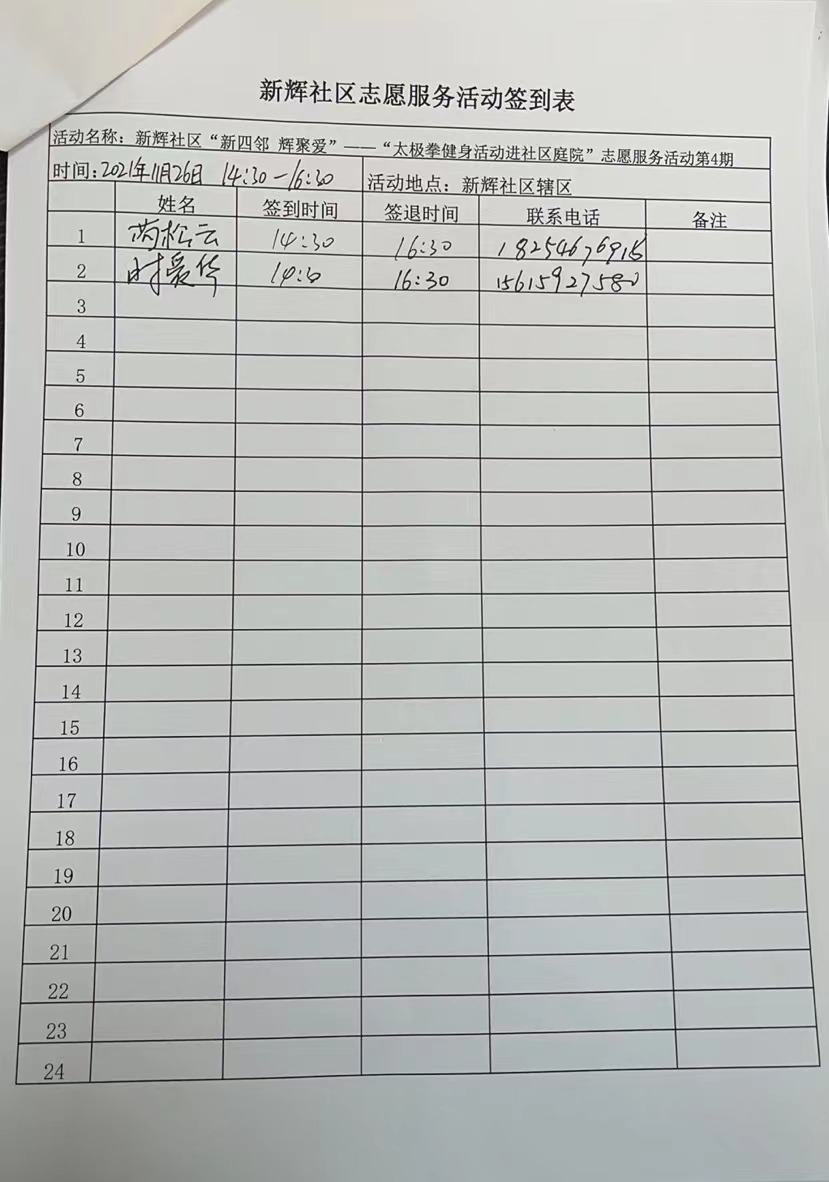 新辉社区志愿服务活动签到表
活动名称：新辉社区“新四邻 辉聚爱”——“太极拳健身活动进社区庭院”志愿服务活动第4期
时间：2021年11月26日 14:30-16:30 活动地点：新辉社区辖区
姓名 签到时间 签退时间 联系电话 备注
1 松云 14:30 16:30 18254676915
2 时爱华 14:30 16:30 15615927580
3
4
5
6
7
8
9
10
11
12
13
14
15
16
17
18
19
20
21
22
23
24